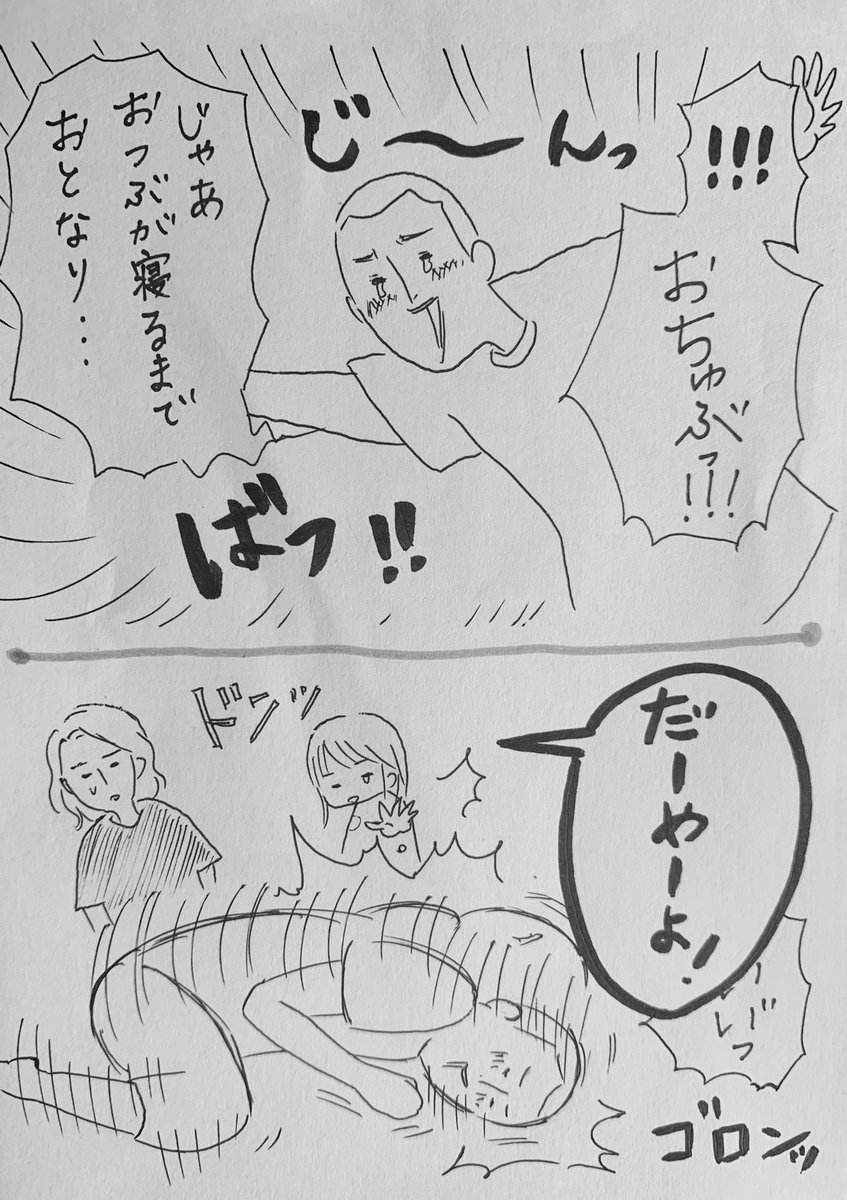 !!!
おちゅぶっ!!!
じ〜んっ
じゃあ
おつぶが寝るまで
おとなり…
ばっ!!
だーやーよ!
ドンッ
ゴロンッ